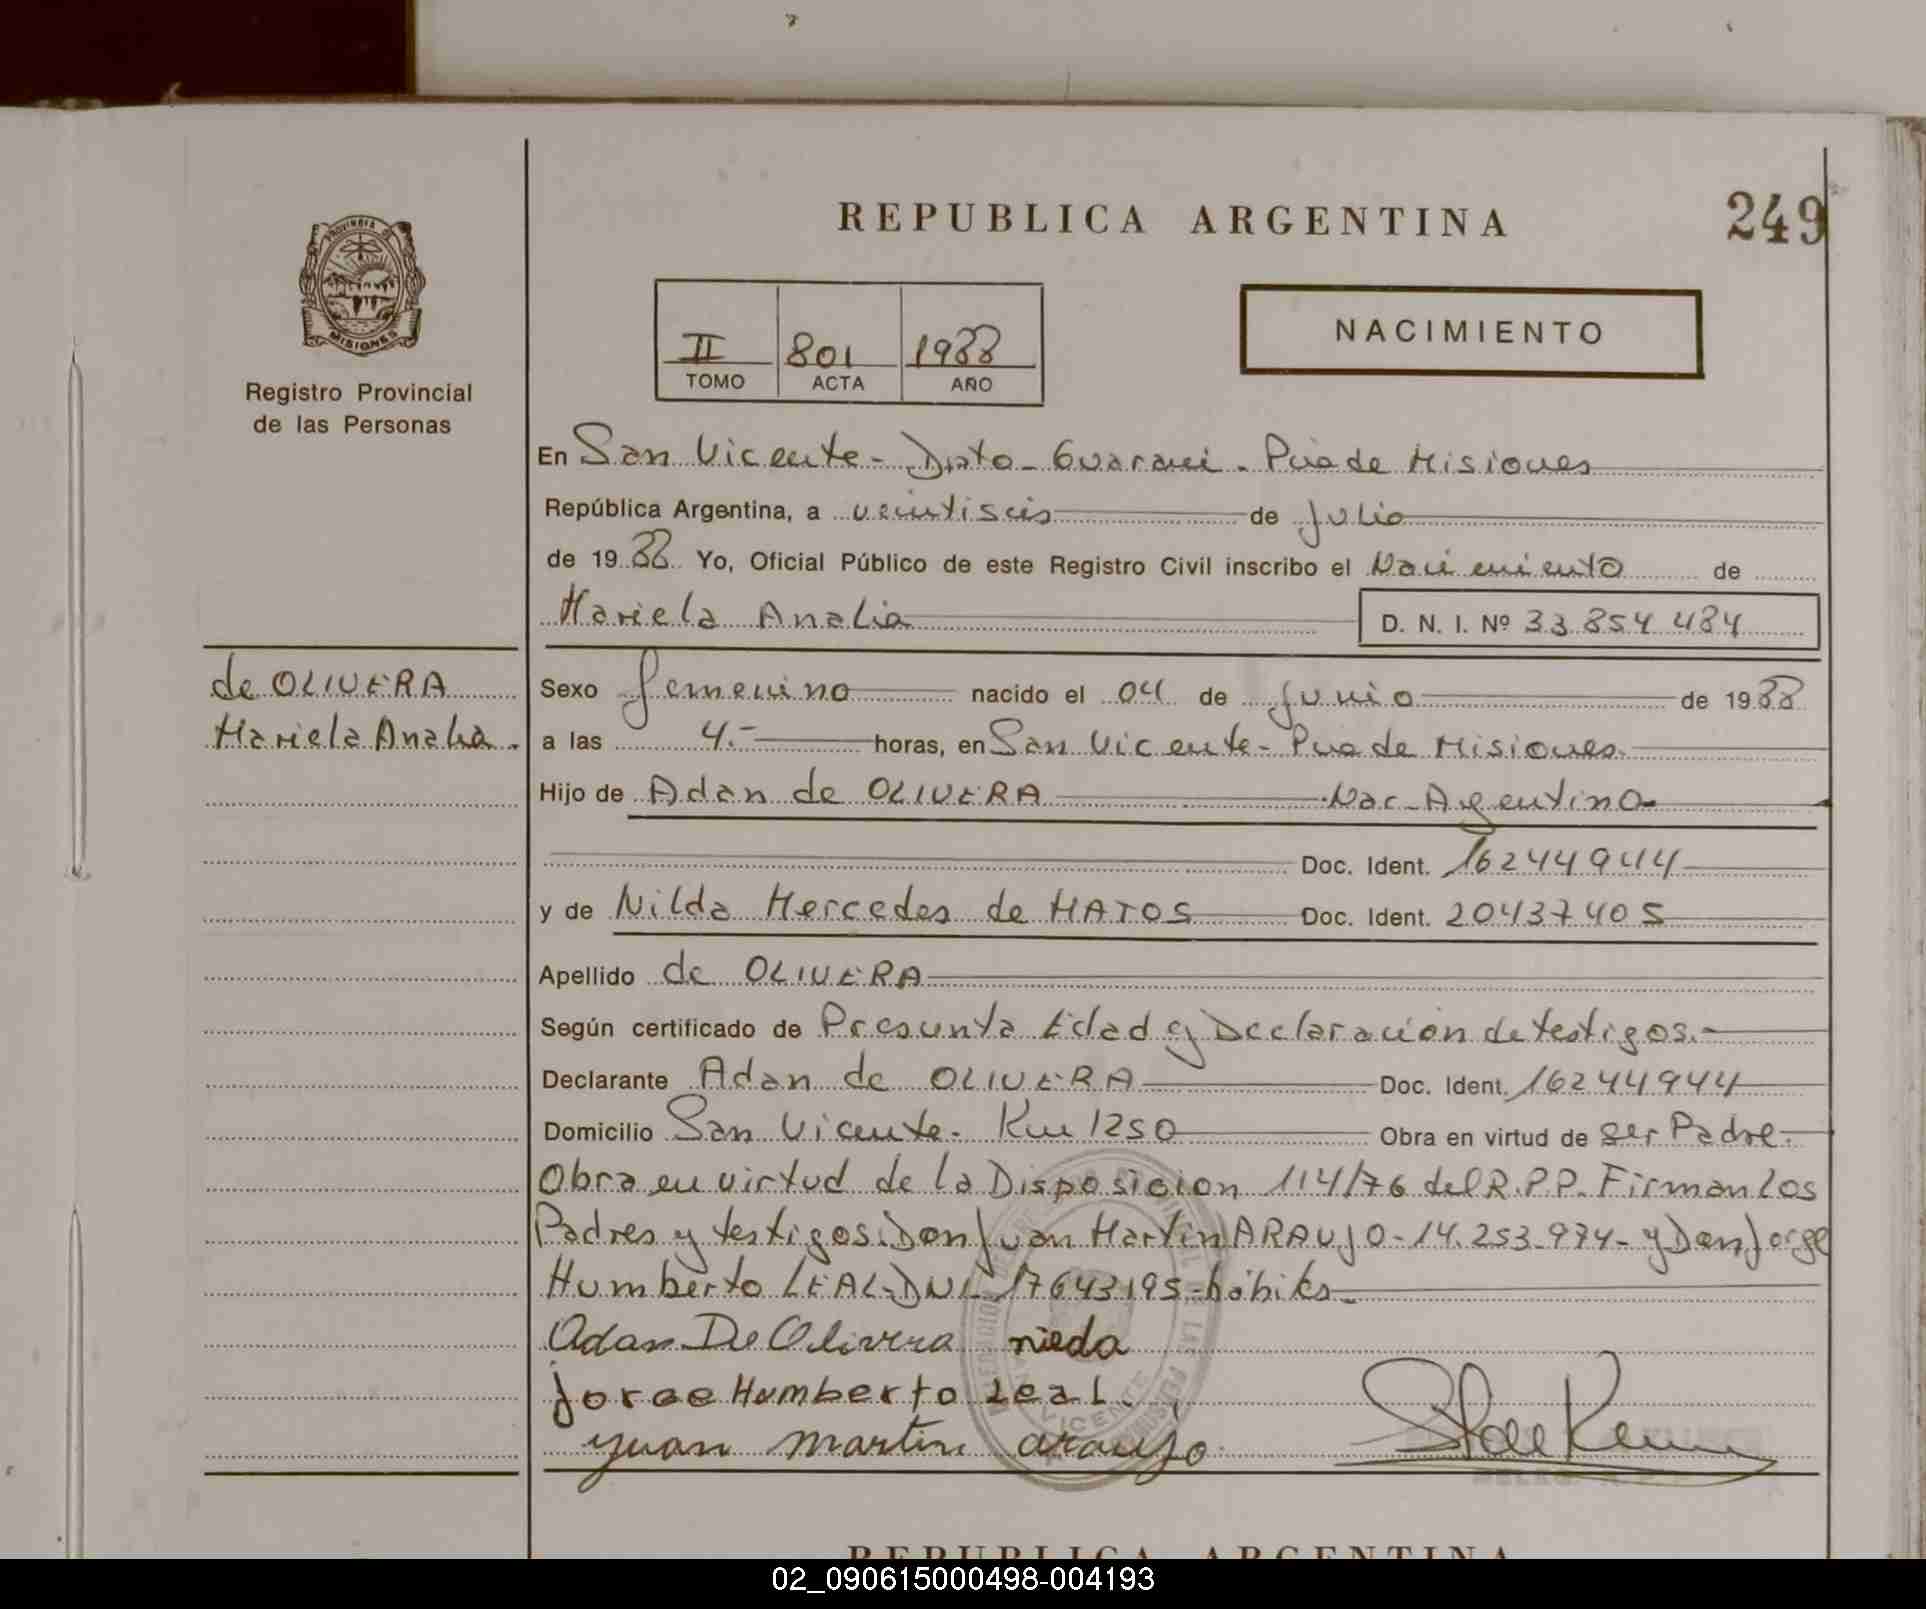 REPUBLICA ARGENTINA
249
PROVINCIA DE
MISIONES
Registro Provincial
de las Personas
II 801 1988
TOMO ACTA AÑO
NACIMIENTO
En San Vicente - Dpto - Guarani - Pcia de Misiones
República Argentina, a veintiseis de Julio
de 1988 Yo, Oficial Público de este Registro Civil inscribo el Nacimiento de
Mariela Analia D. N. I. Nº 33 854 484
de OLIVERA
Mariela Analia.
Sexo femenino nacido el 04 de Junio de 1988
a las 4.- horas, en San Vicente - Pcia de Misiones.
Hijo de Adan de OLIVERA Nac - Argentino
Doc. Ident. 16244944
y de Nilda Mercedes de MATOS Doc. Ident. 20437405
Apellido de OLIVERA
Según certificado de Presunta Edad y Declaracion de testigos.-
Declarante Adan de OLIVERA Doc. Ident. 16244944
Domicilio San Vicente - Km 1250 Obra en virtud de ser Padre.-
Obra en virtud de la Disposicion 114/76 del R.P.P. Firman los
Padres y testigos: Don Juan Martin ARAUJO - 14.253.974 - y Don Jorge
Humberto LEAL - DNI 17643195 - hábiles -
Adan De Olivera nieda
jorge Humberto Leal.
yuan martin araujo
VICENTE
REPUBLICA ARGENTINA
02_090615000498-004193